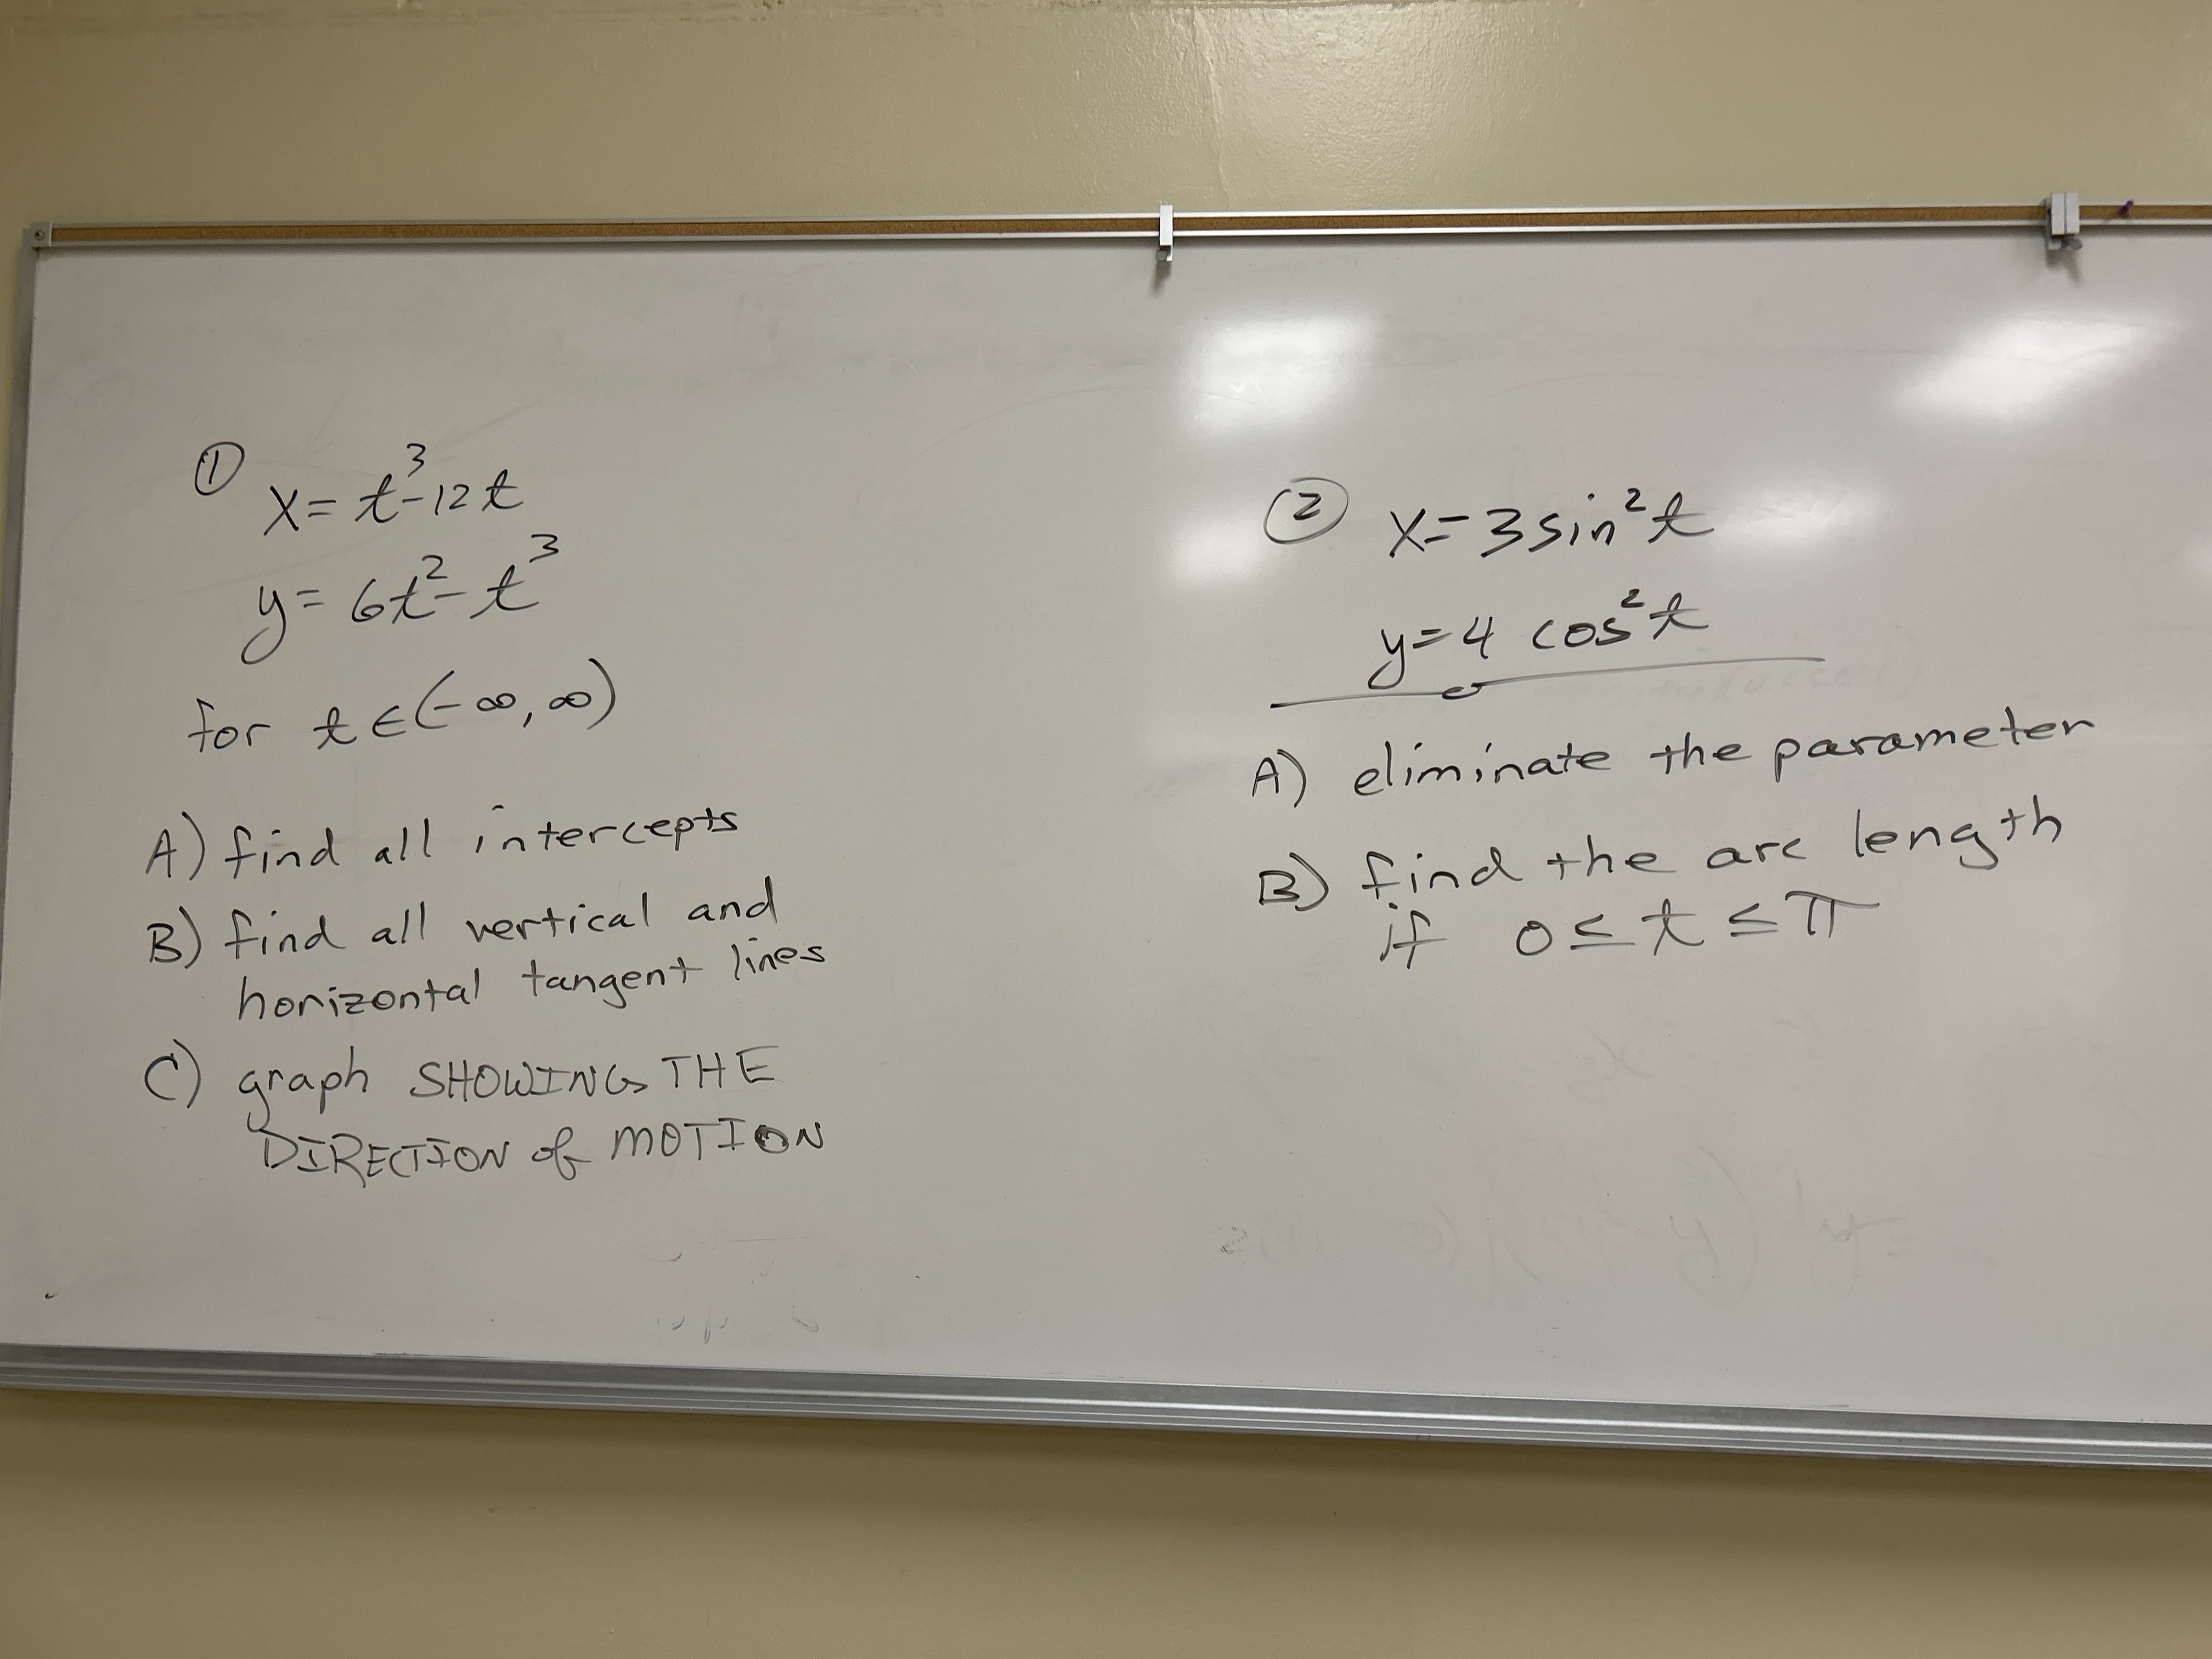 ①
x = t³ - 12t
y = 6t² - t³
for t ∈ (-∞, ∞)
A) find all intercepts
B) find all vertical and
horizontal tangent lines
C) graph SHOWING THE
DIRECTION of MOTION
② x = 3 sin² t
y = 4 cos² t
A) eliminate the parameter
B) find the arc length
if 0 ≤ t ≤ π